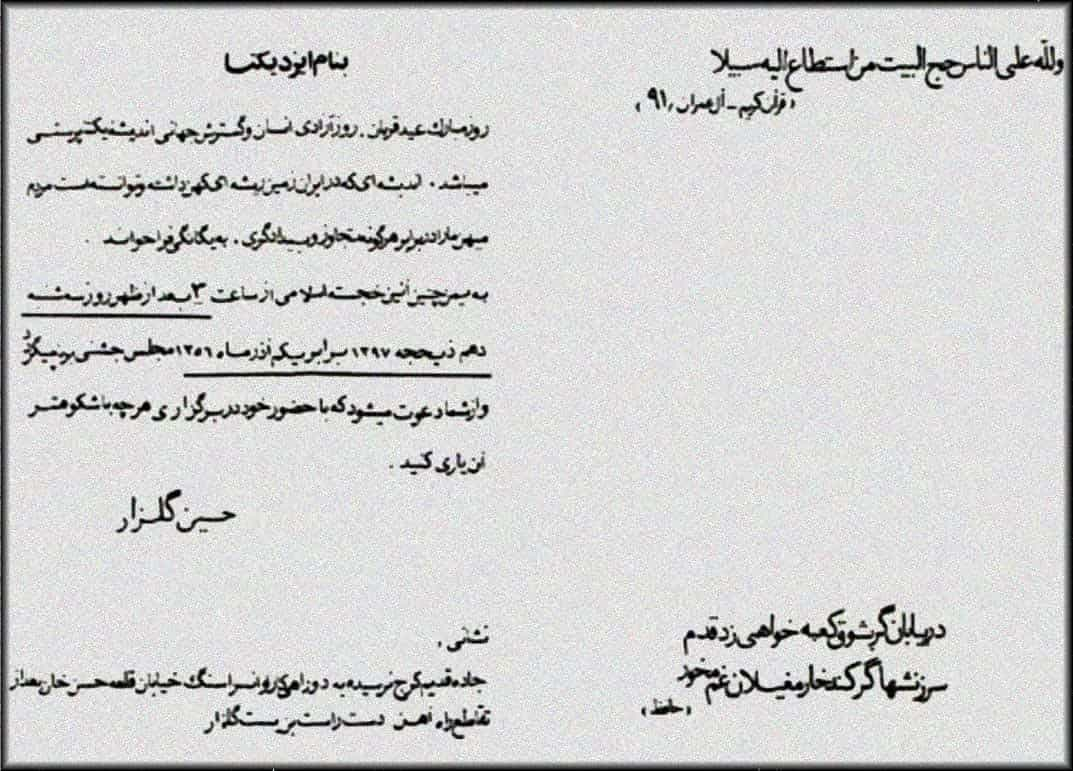 ولله علی الناس حج البیت من استطاع الیه سبیلا
(قرآن کریم - آل عمران / ۹۱)
در بیابان گر بشوق کعبه خواهی زد قدم
سرزنشها گر کند خار مغیلان غم مخور
(حافظ)
بنام ایزد یکتا
روز مبارک عید قربان، روز آزادی انسان و گسترش جهانی اندیشه یکتاپرستی
میباشد. اندیشه ای که در ایران زمین ریشه ای کهن داشته و توانسته است مردم
میهن ما را در برابر هرگونه تجاوز و بیدادگری، به یگانگی فراخواند.
به یمن چنین آئین خجسته اسلامی از ساعت ۳ بعد از ظهر روز سه شنبه
دهم ذیحجه ۱۳۹۷ برابر یکم آذر ماه ۱۳۵۶ مجلس جشنی برپا میگردد
و از شما دعوت میشود که با حضور خود در برگزاری هر چه باشکوهتر
آن یاری کنید.
حسین گلزار
نشانی:
جاده قدیم کرج نرسیده به دوراهی کارخانه سنگ خیابان قلعه حسن خان بعد از
تقاطع راه آهن دست راست بن بست گلزار